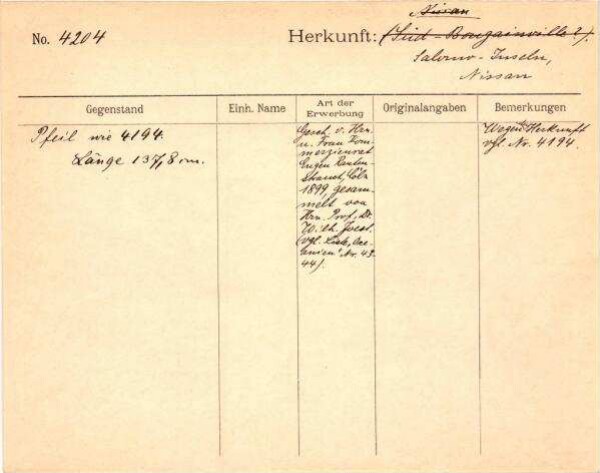 Nissan
No. 4204
Herkunft: (Süd-Bougainville?).
Salomo-Inseln,
Nissan
Gegenstand
Einh. Name
Art der
Erwerbung
Originalangaben
Bemerkungen
Pfeil wie 4194.
Länge 137,8 cm.
Gesch. v. Hrn.
u. Frau Kom-
merzienrat
Eugen Rauten-
strauch, Cöln
1899, gesam-
melt von
Hrn. Prof. Dr.
W. Joest.
(vgl. Liste, Oze-
anien" Nr. 43-
44).
Wegen Herkunft
vgl. No. 4194.